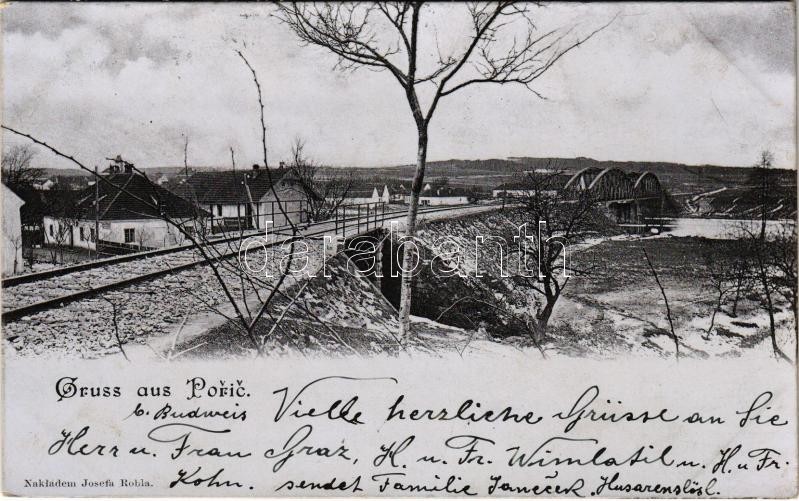 darabanth
Gruss aus Pořič.
b. Budweis
Vielle herzliche Grüsse an Sie
Herr u. Frau Graz, H. u. Fr. Wimlatil u. H. u. Fr.
Kohn. sendet Familie Janeček.
Nakladem Josefa Robla.